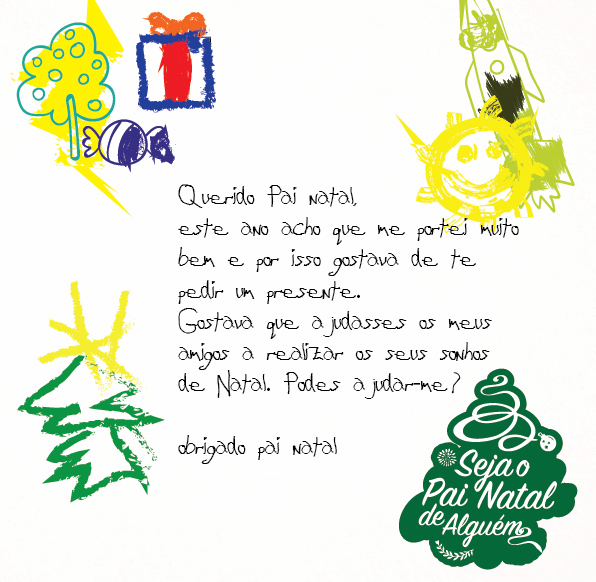 Querido Pai natal,
este ano acho que me portei muito
bem e por isso gostava de te
pedir um presente.
Gostava que ajudasses os meus
amigos a realizar os seus sonhos
de Natal. Podes ajudar-me?
obrigado pai natal
Seja o
Pai Natal
de Alguém